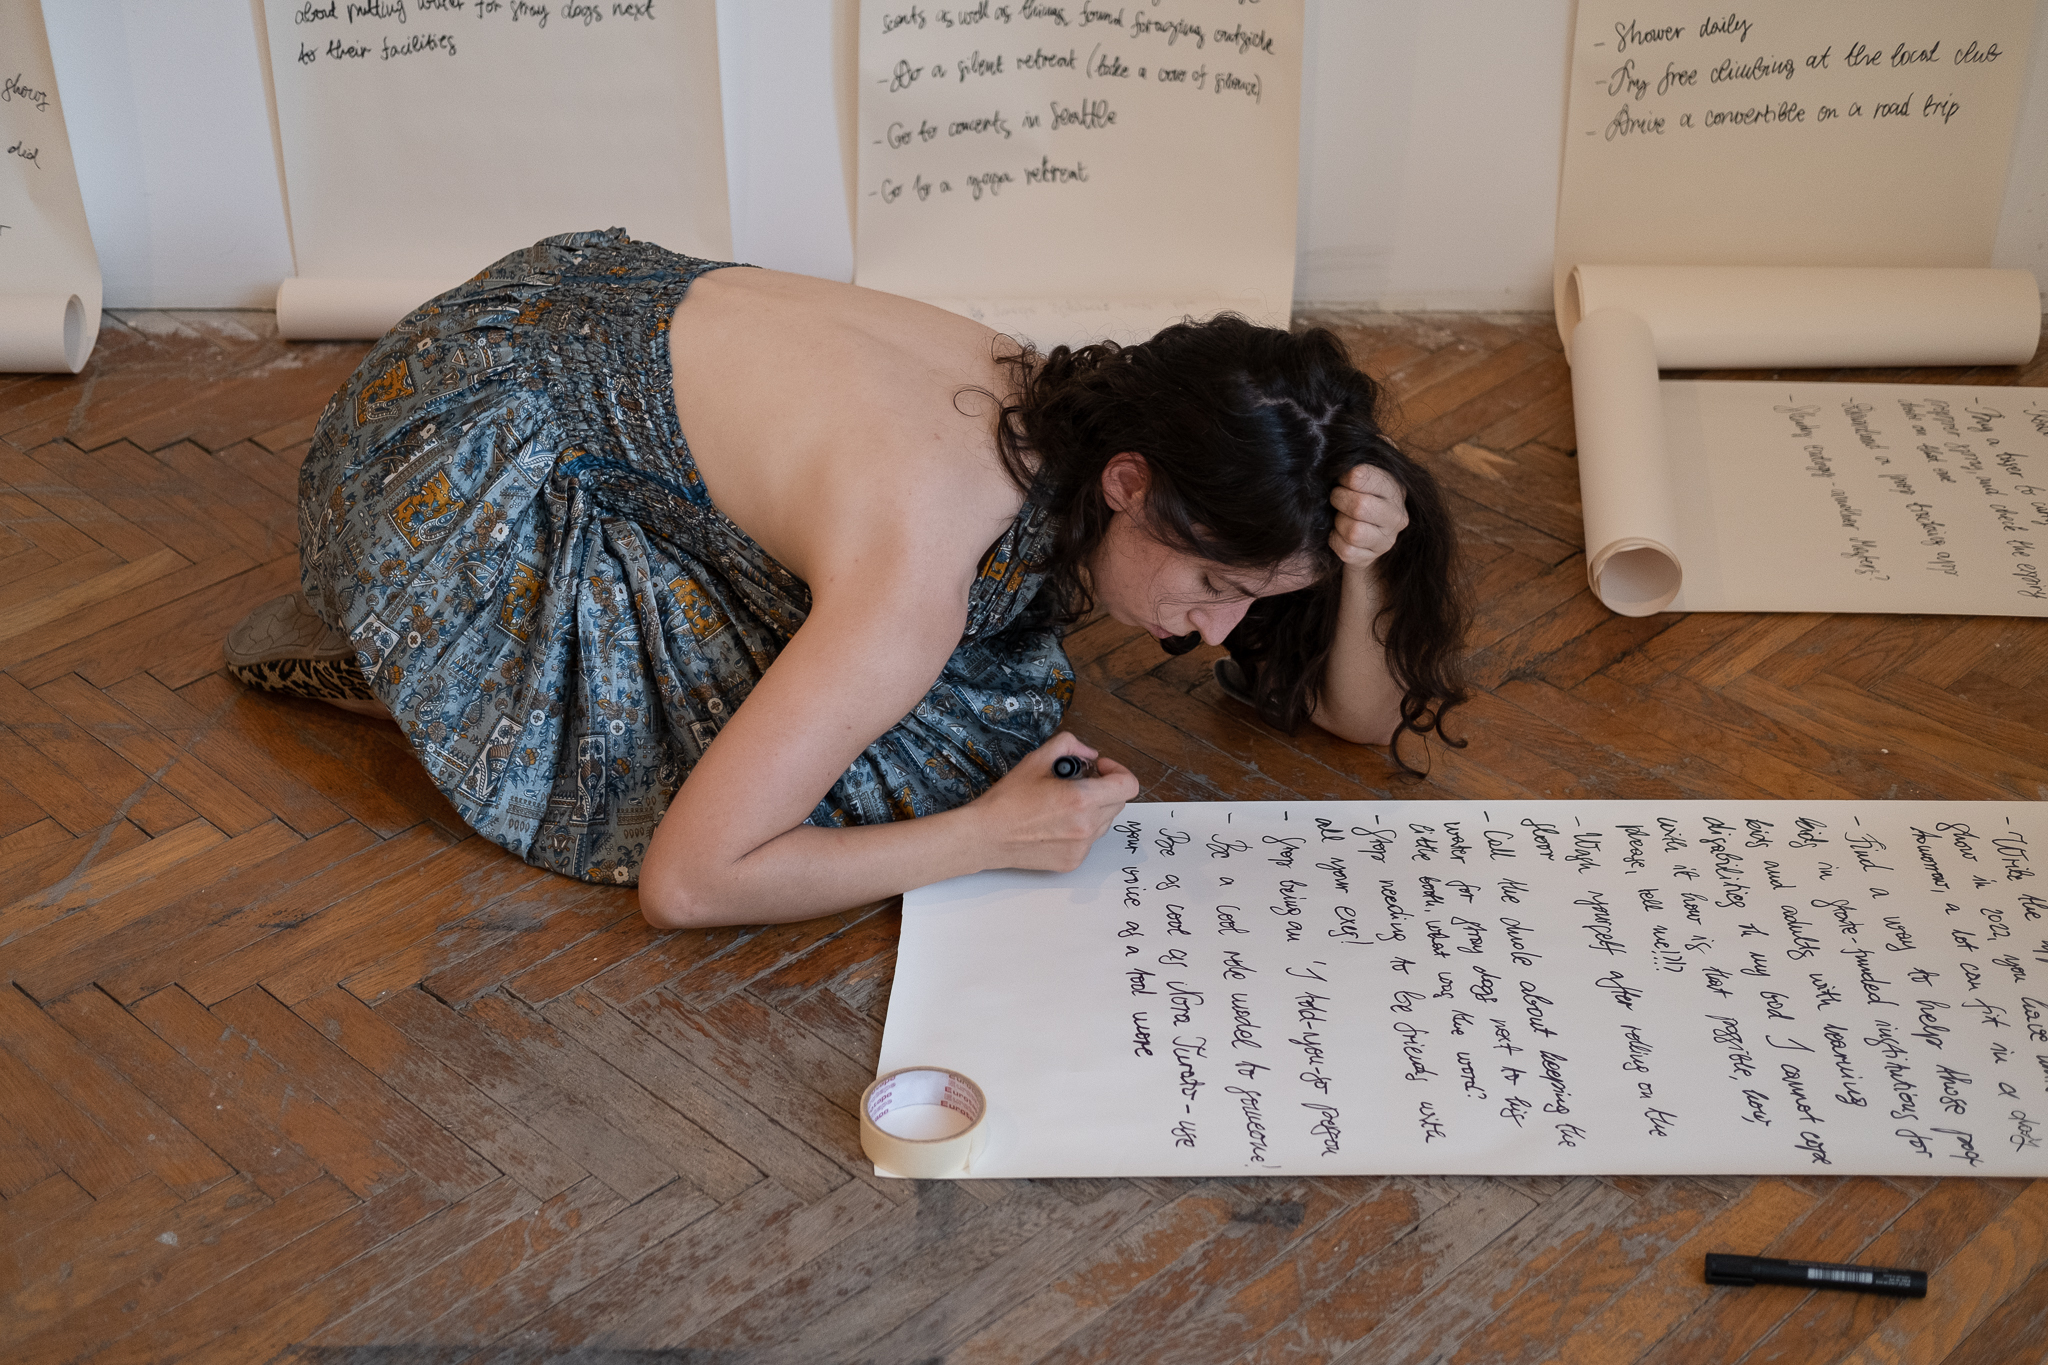 shows
did
about putting water for stray dogs next
to their facilities
scents as well as things found foraging outside
- Do a silent retreat (take a vow of silence)
- Go to concerts in Seattle
- Go to a yoga retreat
- Shower daily
- Try free climbing at the local club
- Drive a convertible on a road trip
- Buy a taser to carry
pepper spray and check the expiry
date on that one
- Download a poop tracking app
- Study ecology - another Masters?
- Write the
show in 2022, you have
tomorrow, a lot can fit in a day
- Find a way to help those poor
kids in state-funded institutions for
kids and adults with learning
disabilities to my god I cannot cope
with it how is that possible, how,
please, tell me!?!?
- Wash yourself after rolling on the
floor
- Call the dude about keeping the
water for stray dogs next to his
little booth, what was the word?
- Stop needing to be friends with
all your exes!
- Stop being an 'I told-you-so person
- Be a cool role model to someone!
- Be as cool as Nora Turato - use
your voice as a tool more
Eurotape